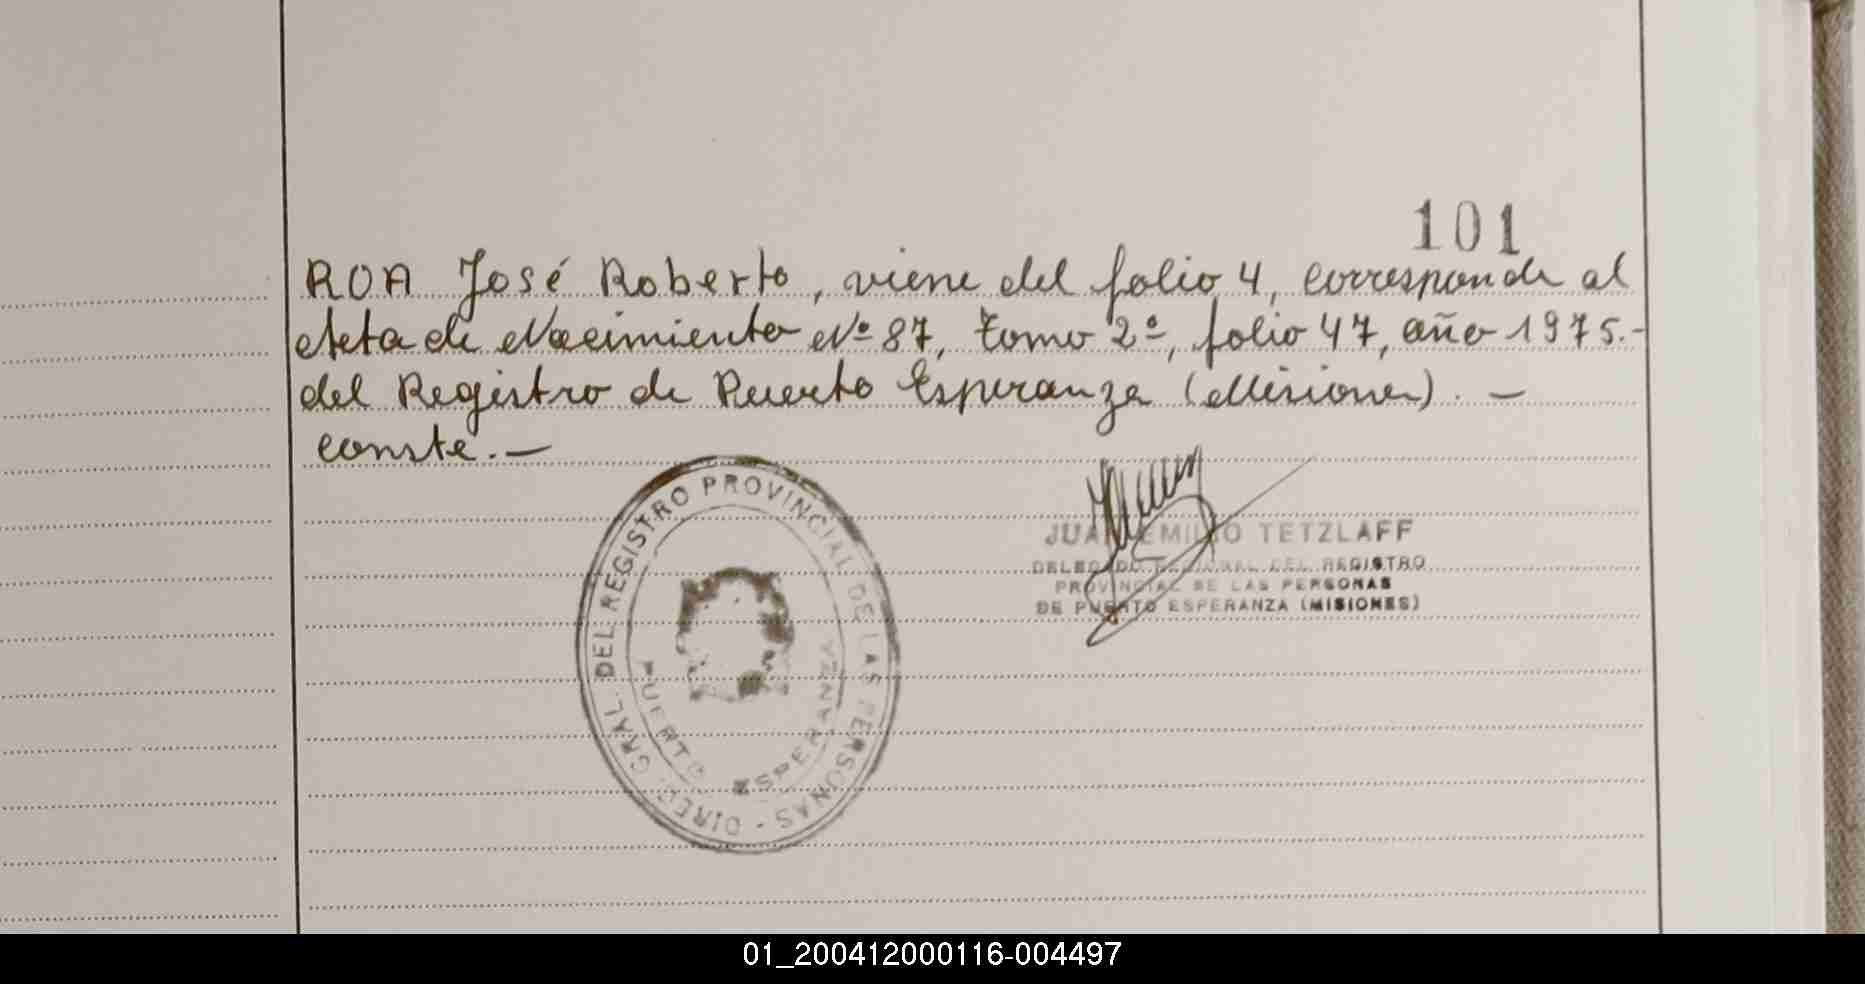 101
ROA José Roberto, viene del folio 4, corresponde al
Acta de Nacimiento Nº 87, tomo 2º, folio 47, año 1975.-
del Registro de Puerto Esperanza (Misiones). -
conste. -
DIREC. GRAL. DEL REGISTRO PROVINCIAL DE LAS PERSONAS -
PUERTO ESPERANZA
JUAN EMILIO TETZLAFF
DELEGADO REGIONAL DEL REGISTRO
PROVINCIAL DE LAS PERSONAS
DE PUERTO ESPERANZA (MISIONES)
01_200412000116-004497